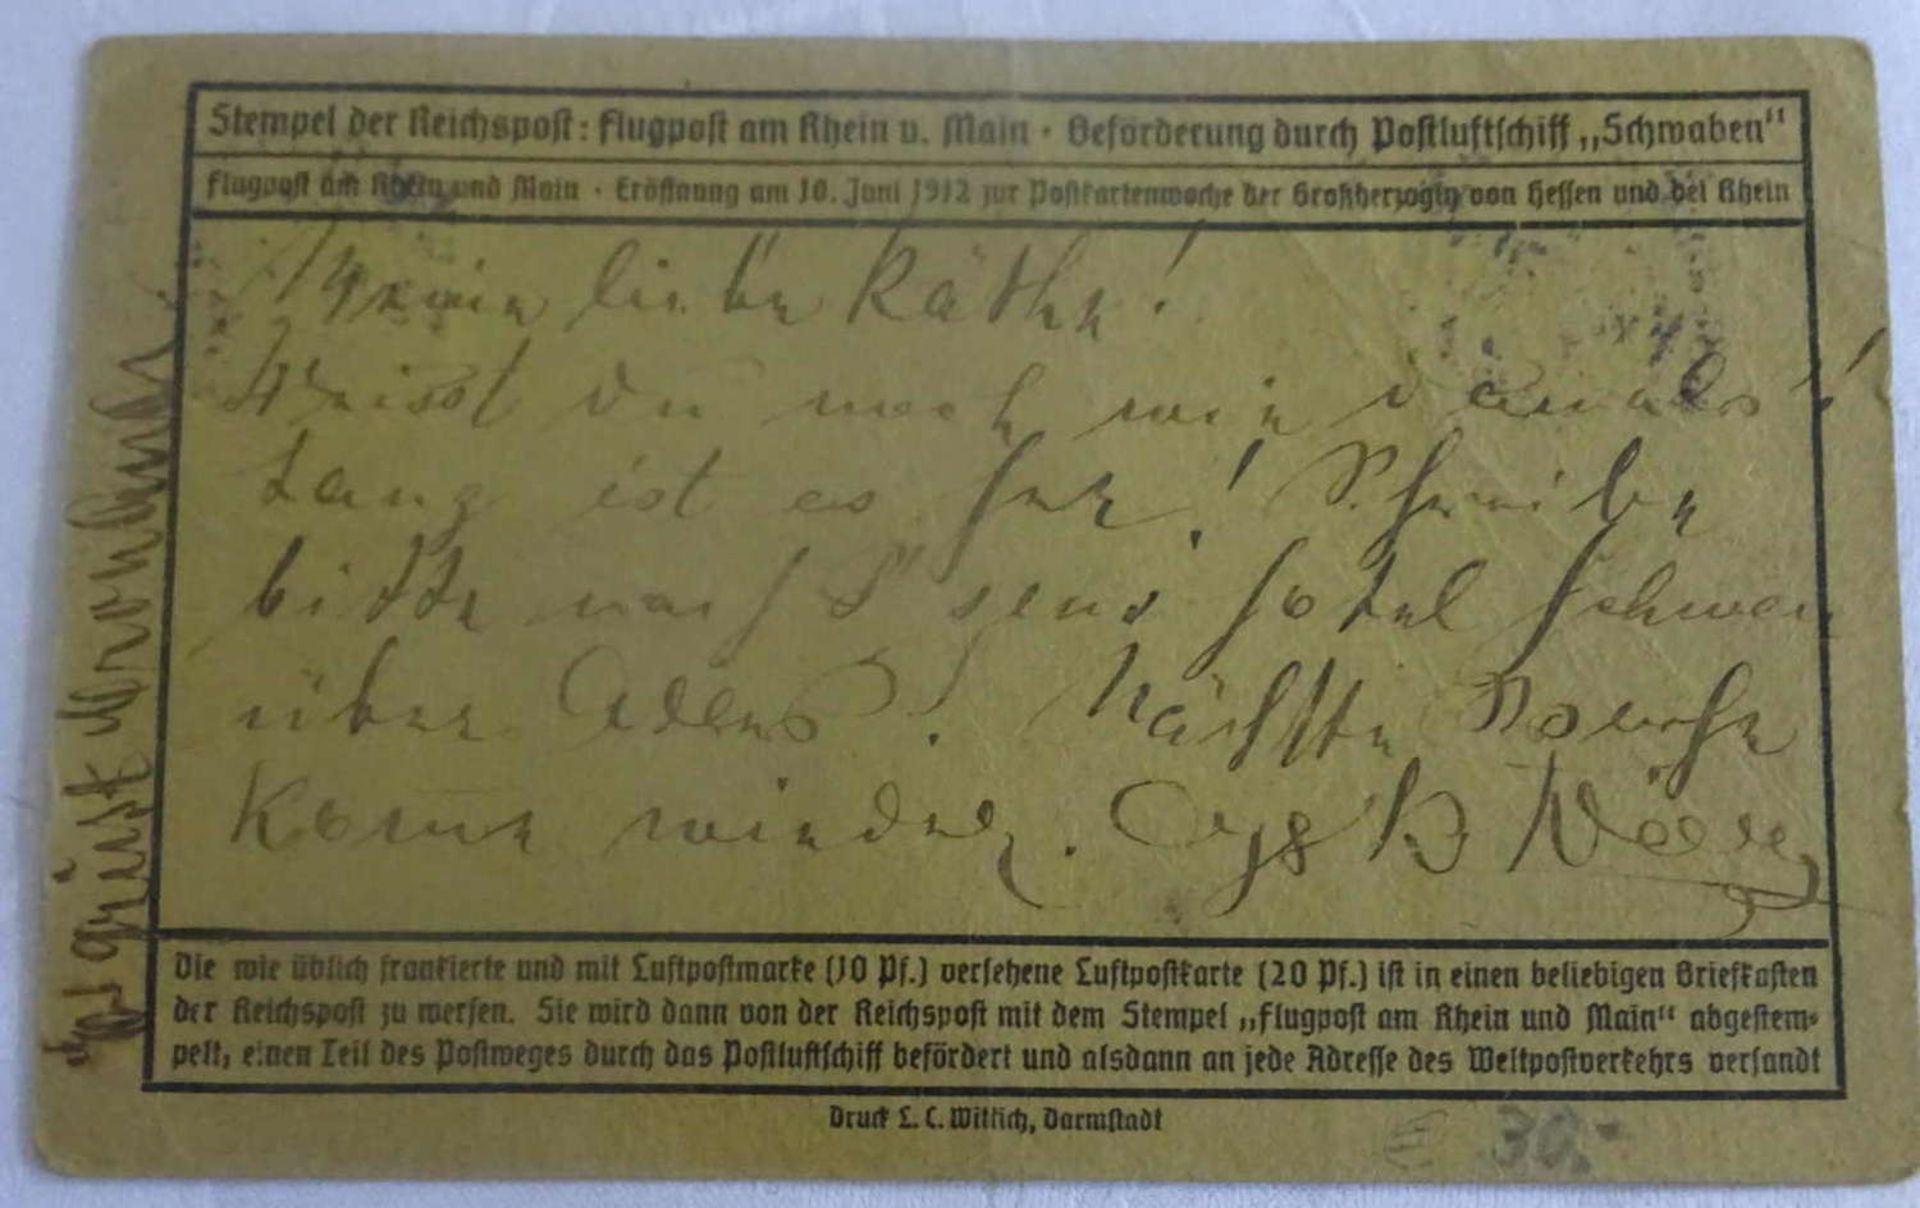 Stempel der Reichspost: Flugpost am Rhein u. Main · Beförderung durch Postluftschiff „Schwaben"
Flugpost am Rhein und Main · Eröffnung am 10. Juni 1912 zur Postkartenwoche der Großherzogin von Hessen und bei Rhein
Meine liebe Käthe!
Weisst du noch wie damals!
Lang ist es her! Schreibe
bitte nach Hotel Schwan
über. Nächste Woche
Komme wieder.
Es grüsst
Die wie üblich frankierte und mit Luftpostmarke (10 Pf.) versehene Luftpostkarte (20 Pf.) ist in einen beliebigen Briefkasten
der Reichspost zu werfen. Sie wird dann von der Reichspost mit dem Stempel „Flugpost am Rhein und Main" abgestem-
pelt, einen Teil des Postweges durch das Postluftschiff befördert und alsdann an jede Adresse des Weltpostverkehrs versandt
Druck L. C. Wittich, Darmstadt
€ 30.-